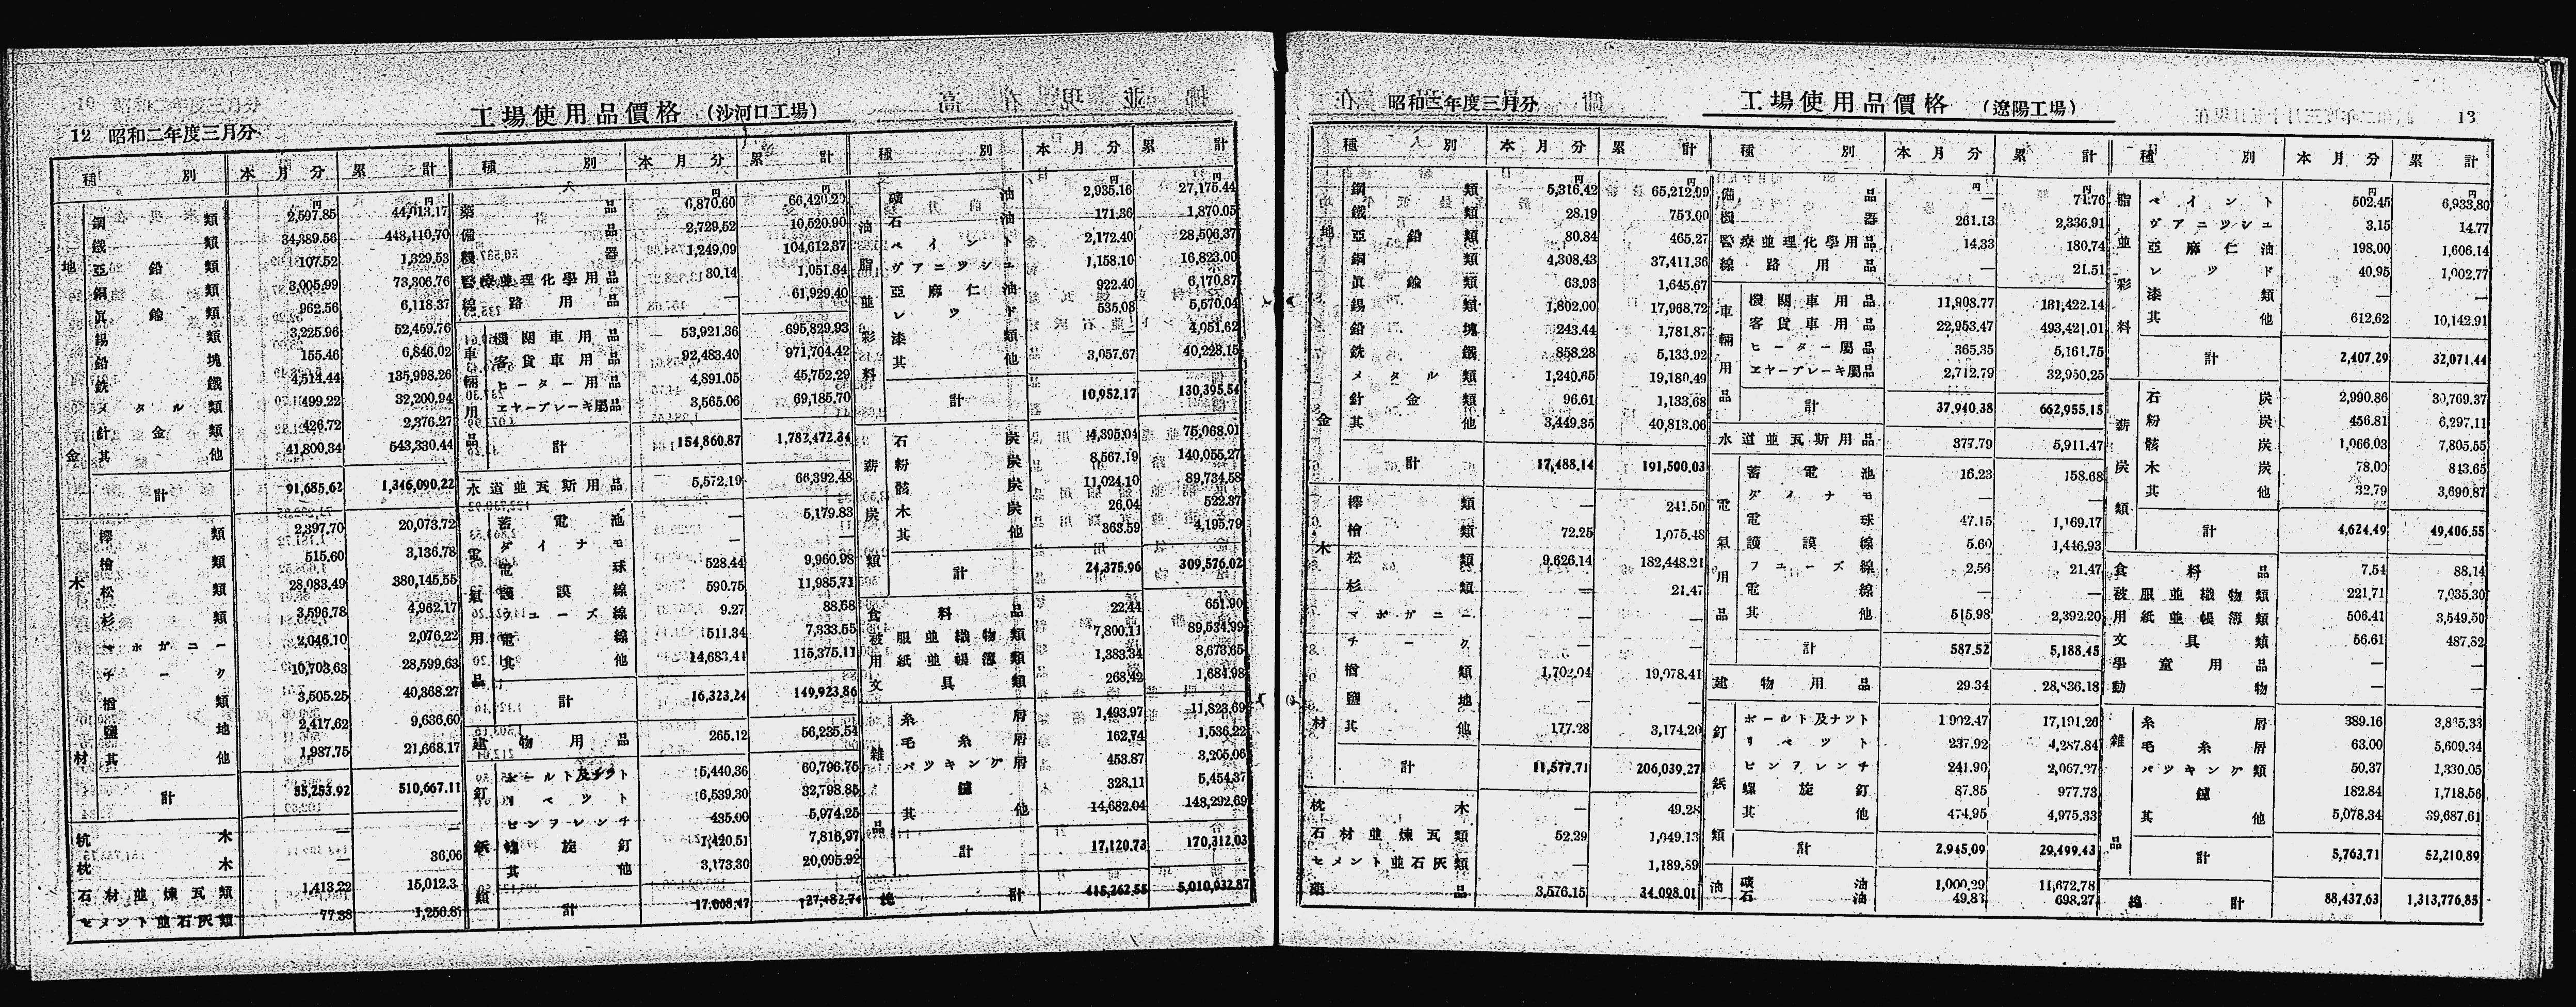 12 昭和二年度三月分 工場使用品價格 (沙河口工場)
種別 本月分 累計
地金
鋼類 2,597.85 44,013.17
鐵類 34,389.56 448,110.70
亞鉛類 107.52 1,329.53
銅類 3,005.99 73,306.76
眞鍮類 962.56 6,118.37
錫類 3,225.96 52,459.76
鉛塊 155.46 6,846.02
銑鐵 4,514.44 135,998.26
メタル類 499.22 32,200.94
針金類 426.72 2,376.27
其他 41,800.34 543,330.44
計 91,685.62 1,346,090.22
木材
樫類 2,397.70 20,073.72
檜類 515.60 3,136.78
松類 28,083.49 380,145.55
杉類 3,596.78 4,962.17
マホガニー 2,046.10 2,076.22
チーク 10,703.63 28,599.63
楢類 3,505.25 40,368.27
鹽地 2,417.62 9,636.60
其他 1,987.75 21,668.17
計 55,253.92 510,667.11
杭木 — —
枕木 — 36.06
石材並煉瓦類 1,413.22
セメント並石灰類 77.38
種別 本月分 累計
藥品 6,870.60
備品 2,729.52 10,520.90
機器 1,249.09 104,612.37
醫療並理化學用品 30.14 1,051.34
線路用品 — 61,929.40
車輛用品
機關車用品 53,921.36 695,829.93
客貨車用品 92,483.40 971,704.42
ヒーター用品 4,891.05 45,752.29
ヱヤーブレーキ屬品 3,565.06 69,185.70
計 154,860.87 1,782,472.34
水道並瓦斯用品 5,572.19 66,392.48
電氣用品
蓄電池 — 5,179.83
ダイナモ — —
電球 528.44 9,960.98
護謨線 590.75 11,985.71
フューズ線 9.27 88.68
電線 511.34 7,333.55
其他 14,683.41 115,375.11
計 16,323.24 149,923.86
建物用品 265.12 56,235.54
釘鋲類
ボールト及ナット 5,440.36 60,796.75
リベット 6,539.30 32,798.85
ピンフレンチ 435.00 5,974.25
螺旋釘 1,420.51 7,816.97
其他 3,173.30 20,095.92
計 17,008.47 127,482.74
種別 本月分 累計
油脂並彩料
礦油 2,935.16 27,175.44
石油 171.36 1,870.05
ペイント 2,172.40 28,506.37
ヴアニツシユ 1,158.10 16,823.00
亞麻仁油 922.40 6,170.87
レツド 535.08 5,570.04
漆類 — 4,051.62
其他 3,057.67 40,228.15
計 10,952.17 130,395.54
薪炭類
石炭 4,395.04 75,068.01
粉炭 8,567.19 140,055.27
骸炭 11,024.10 89,734.58
木炭 26.04 522.37
其他 363.59 4,195.79
計 24,375.96 309,576.02
食料品 22.44 651.90
被服並織物類 7,800.11 89,534.99
用紙並帳簿類 1,383.34 8,673.65
文具類 268.42 1,684.98
雜品
糸屑 1,493.97 11,823.69
毛糸屑 162.74 1,536.22
パツキング屑 453.87 3,205.06
鑢 328.11 5,454.37
其他 14,682.04 148,292.69
計 17,120.73 170,312.03
總計 415,262.55 5,010,932.87
昭和二年度三月分 工場使用品價格 (遼陽工場) 13
種別 本月分 累計
地金
鋼類 5,316.42 65,212.99
鐵類 28.19 753.00
亞鉛類 80.84 465.27
銅類 4,308.43 37,411.36
眞鍮類 63.93 1,645.67
錫類 1,802.00 17,968.72
鉛塊 243.44 1,781.87
銑鐵 858.28 5,133.92
メタル類 1,240.65 19,180.49
針金類 96.61 1,133.68
其他 3,449.35 40,813.06
計 17,488.14 191,500.03
木材
樫類 — 241.50
檜類 72.25 1,075.48
松類 9,626.14 182,448.21
杉類 — 21.47
マホガニー — —
チーク — —
楢類 1,702.04 19,078.41
鹽地 — —
其他 177.28 3,174.20
計 11,577.71 206,039.27
枕木 — 49.28
石材並煉瓦類 52.29 1,049.13
セメント並石灰類 — 1,189.89
藥品 3,576.15 34,098.01
種別 本月分 累計
備品 — 71.76
機器 261.13 2,336.91
醫療並理化學用品 14.33 180.74
線路用品 — 21.51
車輛用品
機關車用品 11,908.77 131,422.14
客貨車用品 22,953.47 493,421.01
ヒーター屬品 365.35 5,161.75
ヱヤーブレーキ屬品 2,712.79 32,950.25
計 37,940.38 662,955.15
水道並瓦斯用品 377.79 5,911.47
電氣用品
蓄電池 16.23 158.68
ダイナモ — —
電球 47.15 1,169.17
護謨線 5.60 1,446.93
フユーズ線 2.56 21.47
電線 — —
其他 515.98 2,392.20
計 587.52 5,188.45
建物用品 29.34 28,836.18
釘鋲類
ボールト及ナツト 1,902.47 17,191.26
リベツト 237.92 4,287.84
ピンフレンチ 241.90 2,067.27
螺旋釘 87.85 977.73
其他 474.95 4,975.33
計 2,945.09 29,499.43
油
礦油 1,000.29 11,672.78
石油 49.83 698.27
種別 本月分 累計
脂並彩料
ペイント 502.45 6,933.80
ヴアニツシユ 3.15 14.77
亞麻仁油 198.00 1,606.14
レツド 40.95 1,002.77
漆類 — —
其他 612.62 10,142.91
計 2,407.29 32,071.44
薪炭類
石炭 2,990.86 30,769.37
粉炭 456.81 6,297.11
骸炭 1,066.03 7,805.55
木炭 78.00 843.65
其他 32.79 3,690.87
計 4,624.49 49,406.55
食料品 7.54 88.14
被服並織物類 221.71 7,035.30
用紙並帳簿類 506.41 3,549.50
文具類 56.61 487.82
學童用品 — —
動物 — —
雜品
糸屑 389.16 3,865.33
毛糸屑 63.00 5,609.34
パツキング類 50.37 1,330.05
鑢 182.84 1,718.56
其他 5,078.34 39,687.61
計 5,763.71 52,210.89
總計 88,437.63 1,313,776.85